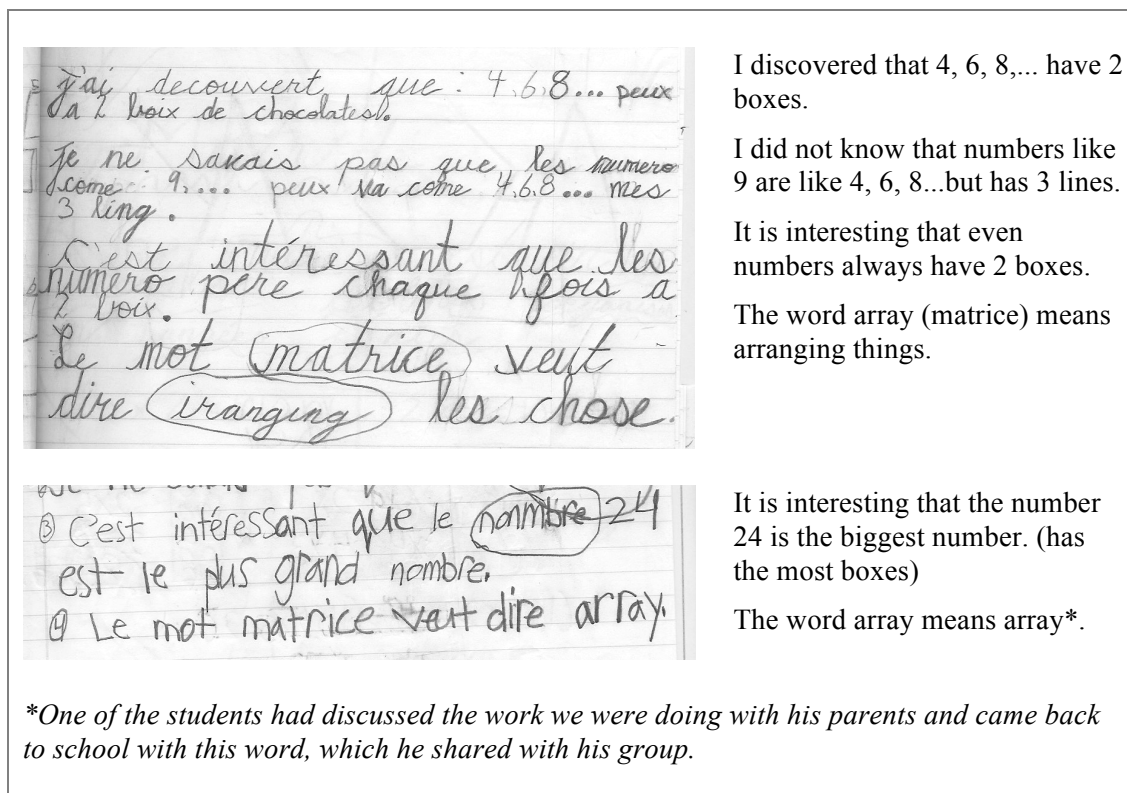 j'ai decouvert que : 4.6.8... peux
a 2 boix de chocolates.
Je ne savais pas que les numero
come 9,... peux va come 4.6.8... mes
3 ling.
C'est intéressant que les
numero pere chaque fois a
2 boix.
Le mot matrice veut
dire iranging les chose.
I discovered that 4, 6, 8,... have 2
boxes.
I did not know that numbers like
9 are like 4, 6, 8...but has 3 lines.
It is interesting that even
numbers always have 2 boxes.
The word array (matrice) means
arranging things.
③ C'est intéressant que le nonmbre 24
est le plus grand nombre.
④ Le mot matrice veut dire array.
It is interesting that the number
24 is the biggest number. (has
the most boxes)
The word array means array*.
*One of the students had discussed the work we were doing with his parents and came back
to school with this word, which he shared with his group.